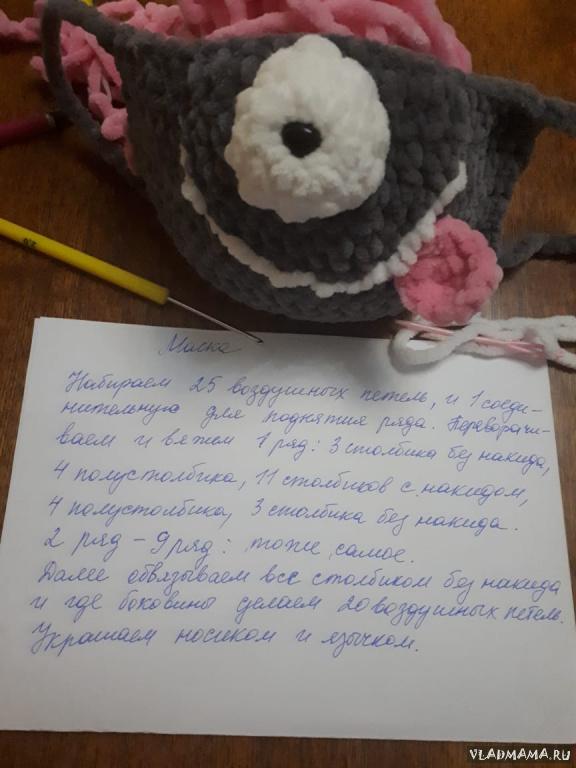 Маска
Набираем 25 воздушных петель, и 1 соеди-
нительную для поднятия ряда. Переворачи-
ваем и вяжем 1 ряд: 3 столбика без накида,
4 полустолбика, 11 столбиков с накидом,
4 полустолбика, 3 столбика без накида.
2 ряд - 9 ряд: тоже самое.
Далее обвязываем все столбиком без накида
и где боковины делаем 20 воздушных петель.
Украшаем носиком и язычком.
VLADMAMA.RU